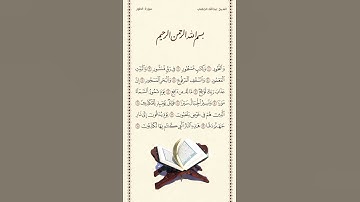 سورة الطور
بسم الله الرحمن الرحيم
وَالطُّورِ ۝ وَكِتَابٍ مَّسْطُورٍ ۝ فِي رَقٍّ مَّنشُورٍ ۝ وَالْبَيْتِ
الْمَعْمُورِ ۝ وَالسَّقْفِ الْمَرْفُوعِ ۝ وَالْبَحْرِ الْمَسْجُورِ ۝ إِنَّ
عَذَابَ رَبِّكَ لَوَاقِعٌ ۝ مَّا لَهُ مِن دَافِعٍ ۝ يَوْمَ تَمُورُ السَّمَاءُ
مَوْرًا ۝ وَتَسِيرُ الْجِبَالُ سَيْرًا ۝ فَوَيْلٌ يَوْمَئِذٍ لِّلْمُكَذِّبِينَ ۝
الَّذِينَ هُمْ فِي خَوْضٍ يَلْعَبُونَ ۝ يَوْمَ يُدَعُّونَ إِلَىٰ نَارِ
جَهَنَّمَ دَعًّا ۝ هَٰذِهِ النَّارُ الَّتِي كُنتُم بِهَا تُكَذِّبُونَ ۝